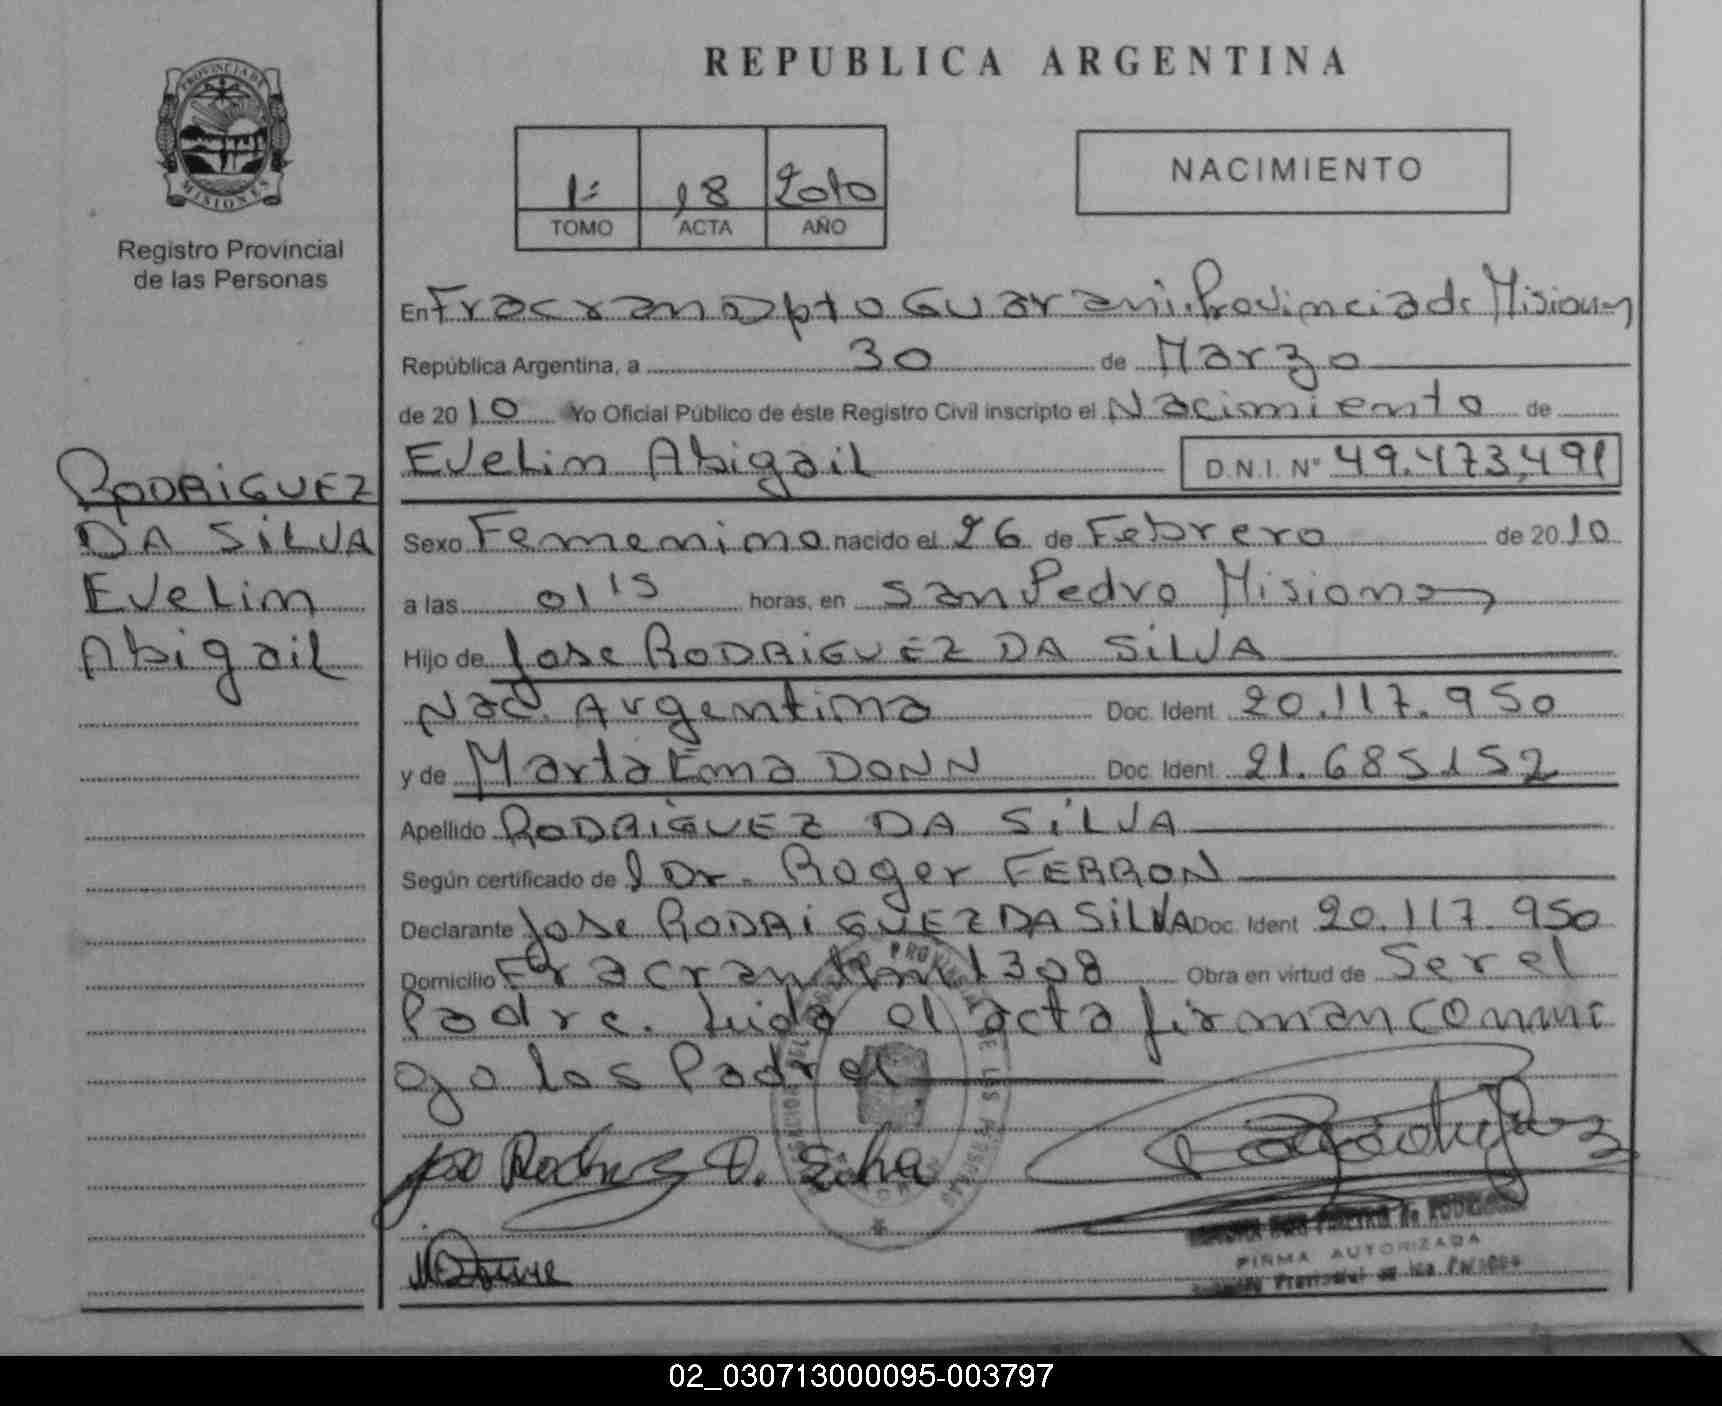 PROVINCIA DE
MISIONES
Registro Provincial
de las Personas
RODRIGUEZ
DA SILVA
Evelim
Abigail
REPUBLICA ARGENTINA
1º 18 2010
TOMO ACTA AÑO
NACIMIENTO
En Fracran Dpto Guarani. Provincia de Misiones
República Argentina, a 30 de Marzo
de 2010 Yo Oficial Público de éste Registro Civil inscripto el Nacimiento de
Evelim Abigail D.N.I. Nº 49.473,491
Sexo Femenino nacido el 26 de Febrero de 2010
a las 01 15 horas, en San Pedro Misiones
Hijo de Jose RODRIGUEZ DA SILVA
Nac. Argentina Doc. Ident. 20.117.950
y de Marta Ema DONN Doc. Ident. 21.685.152
Apellido RODRIGUEZ DA SILVA
Según certificado del Dr. Roger FERRON
Declarante Jose RODRIGUEZ DA SILVA Doc. Ident 20.117.950
Domicilio Fracran Km 1308 Obra en virtud de Ser el
Padre. Leida el acta firman conmi
go los Padres
Jose Rodriguez D. Silva
FIRMA AUTORIZADA
Provincial de las Personas
02_030713000095-003797